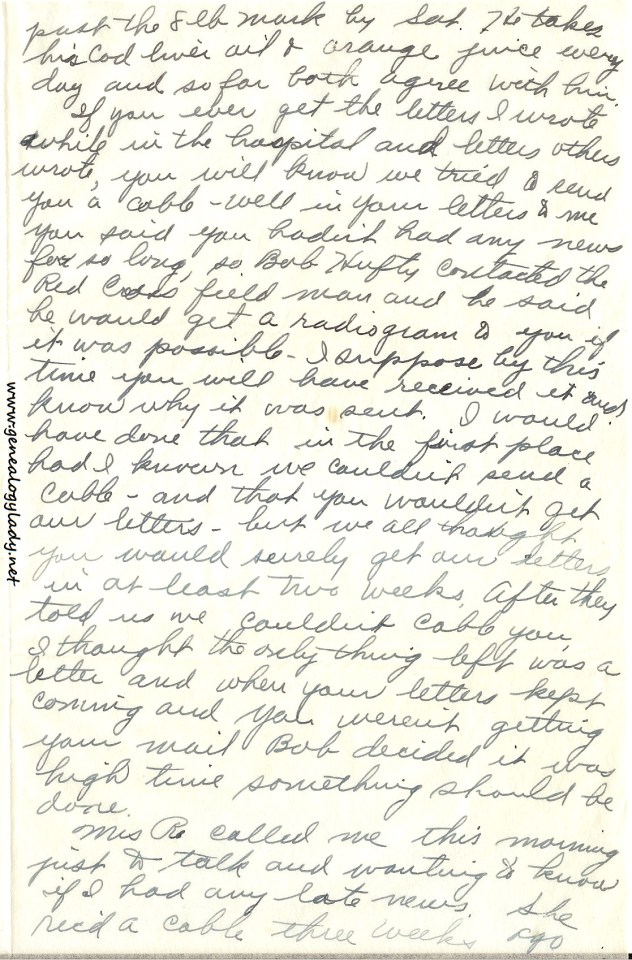 past the 8 lb mark by Sat. He takes
his Cod liver oil & orange juice every
day and so far both agree with him.
If you ever get the letters I wrote
while in the hospital and letters others
wrote, you will know we tried to send
you a cable - well in your letters to me
you said you hadn't had any news
for so long, so Bob Hufty contacted the
Red Cross field man and he said
he would get a radiogram to you if
it was possible - I suppose by this
time you will have received it and
know why it was sent. I would
have done that in the first place
had I known we couldn't send a
cable - and that you wouldn't get
our letters - but we all thought
you would surely get our letters
in at least two weeks. After they
told us we couldn't cable you,
I thought the only thing left was a
letter and when your letters kept
coming and you weren't getting
your mail Bob decided it was
high time something should be
done.
Mrs Re called me this morning
just to talk and wanting to know
if I had any late news. She
rec'd a cable three weeks ago
www.genealogylady.net